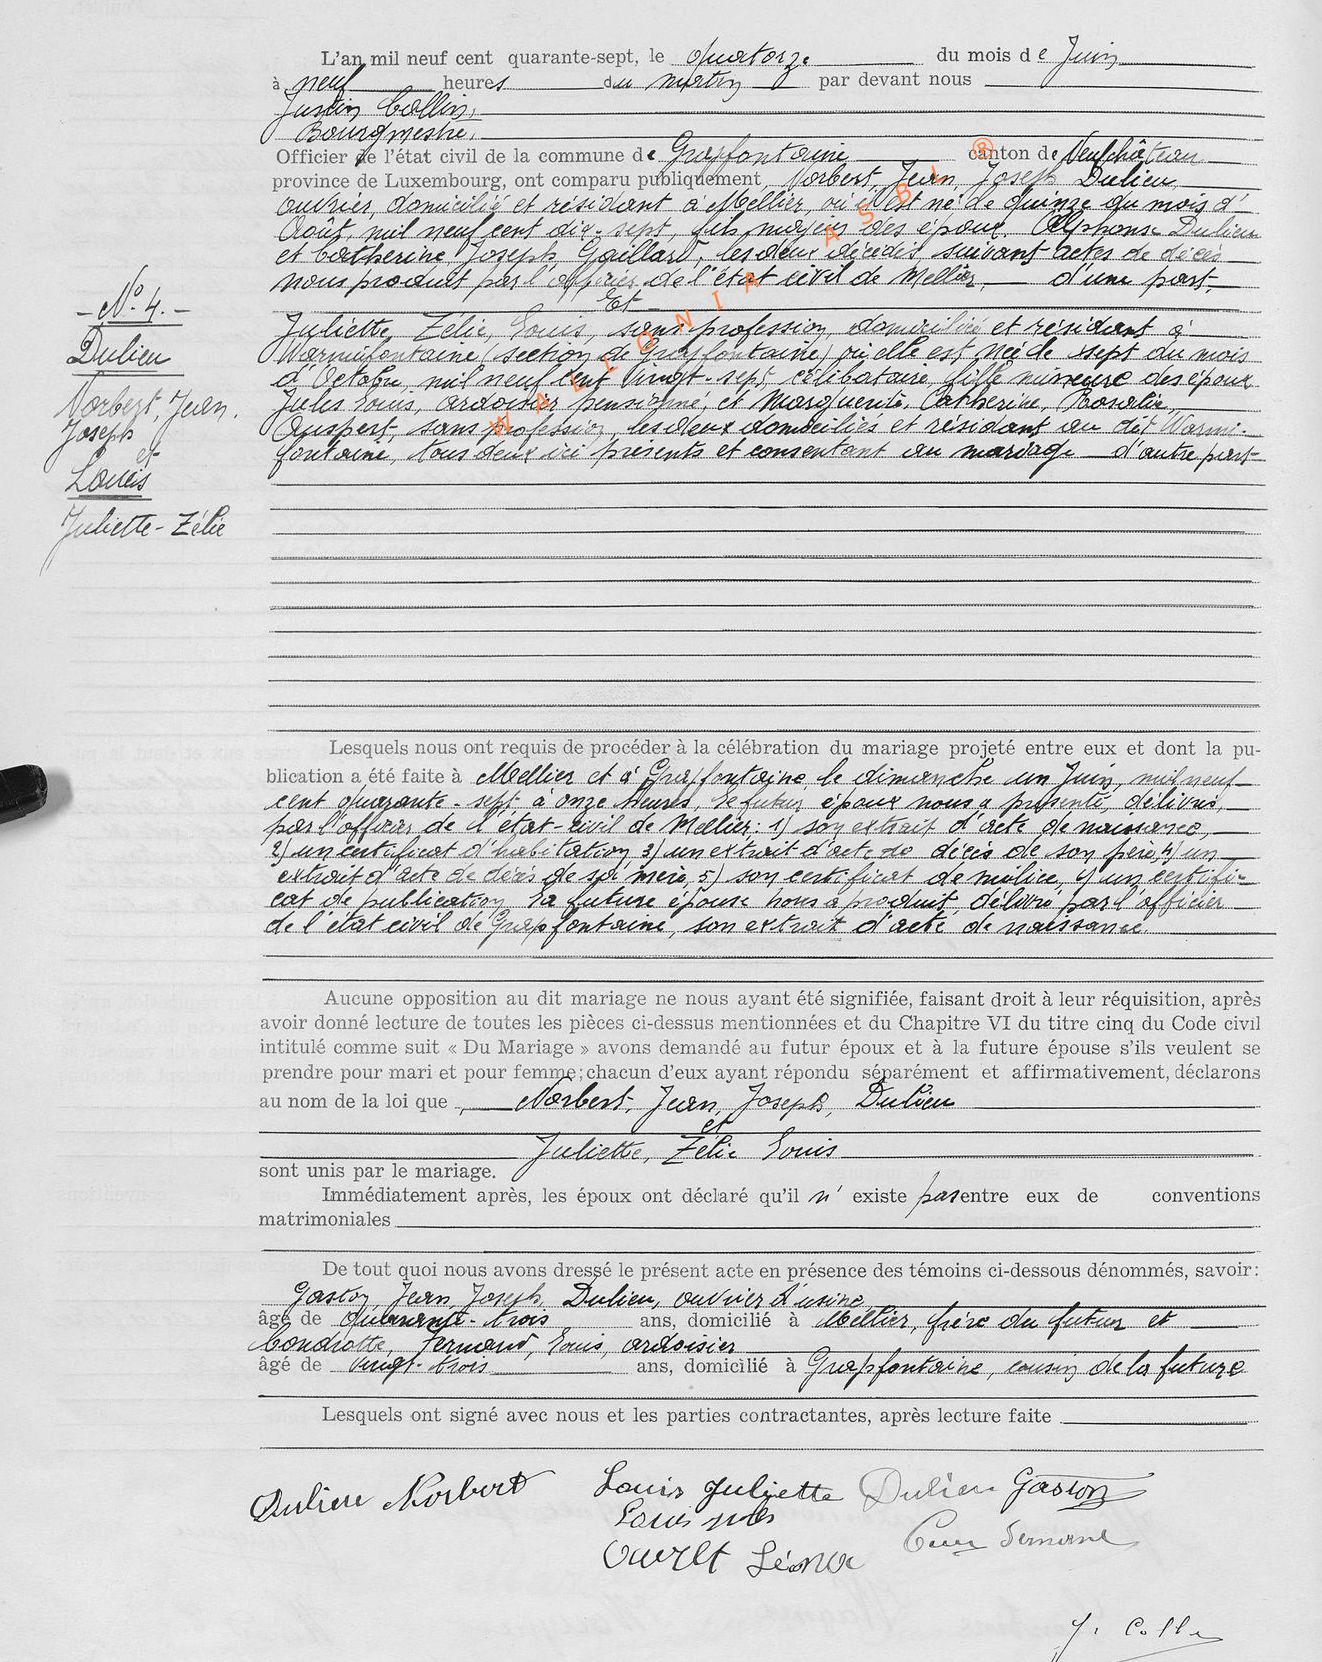 L'an mil neuf cent quarante-sept, le quatorze du mois de Juin
à neuf heures du matin par devant nous
Justin Collin,
Bourgmestre,
Officier de l'état civil de la commune de Grapfontaine canton de Neufchâteau
province de Luxembourg, ont comparu publiquement, Norbert, Jean, Joseph Dulieu
ouvrier, domicilié et résidant à Mellier, où il est né le quinze du mois d'
Août, mil neuf cent dix-sept, fils majeur des époux Alphonse Dulieu
et Catherine Joseph Gaillard, les deux décédés suivant actes de décès
nous produit par l'officier de l'état civil de Mellier, d'une part,
Et
Juliette, Zélie, Louis, sans profession, domiciliée et résidant à
Warmifontaine (section de Grapfontaine) où elle est née le sept du mois
d'Octobre, mil neuf cent vingt-sept, célibataire, fille mineure des époux
Jules Louis, ardoisier pensionné, et Marguerite, Catherine, Rosalie,
sans profession, les deux domiciliés et résidant au dit Warmi-
fontaine, tous deux ici présents et consentant au mariage d'autre part
- N° 4. -
Dulieu
Norbert, Jean,
Joseph
et
Louis
Juliette-Zélie
Lesquels nous ont requis de procéder à la célébration du mariage projeté entre eux et dont la pu-
blication a été faite à Mellier et à Grapfontaine le dimanche un Juin, mil neuf
cent quarante-sept à onze heures, le futur époux nous a présenté, délivré,
par l'officier de l'état-civil de Mellier: 1) son extrait d'acte de naissance,
2) un certificat d'habitation 3) un extrait d'acte de décès de son père, 4) un
extrait d'acte de décès de sa mère, 5) son certificat de milice, un certifi-
cat de publication la future épouse nous a produit, délivré par l'officier
de l'état civil de Grapfontaine, son extrait d'acte de naissance.
Aucune opposition au dit mariage ne nous ayant été signifiée, faisant droit à leur réquisition, après
avoir donné lecture de toutes les pièces ci-dessus mentionnées et du Chapitre VI du titre cinq du Code civil
intitulé comme suit « Du Mariage » avons demandé au futur époux et à la future épouse s'ils veulent se
prendre pour mari et pour femme; chacun d'eux ayant répondu séparément et affirmativement, déclarons
au nom de la loi que, Norbert, Jean, Joseph, Dulieu
et
Juliette, Zélie Louis
sont unis par le mariage.
Immédiatement après, les époux ont déclaré qu'il n'existe pas entre eux de conventions
matrimoniales
De tout quoi nous avons dressé le présent acte en présence des témoins ci-dessous dénommés, savoir:
Gaston, Jean Joseph, Dulieu, ouvrier d'usine
âgé de quarante-trois ans, domicilié à Mellier, frère du futur et
Condrotte, Fernand, Louis, ardoisier
âgé de vingt-trois ans, domicilié à Grapfontaine, cousin de la future
Lesquels ont signé avec nous et les parties contractantes, après lecture faite
Dulieu Norbert Louis Juliette Dulieu Gaston
Louis
J. Collin
WALLONIA ASBL ®